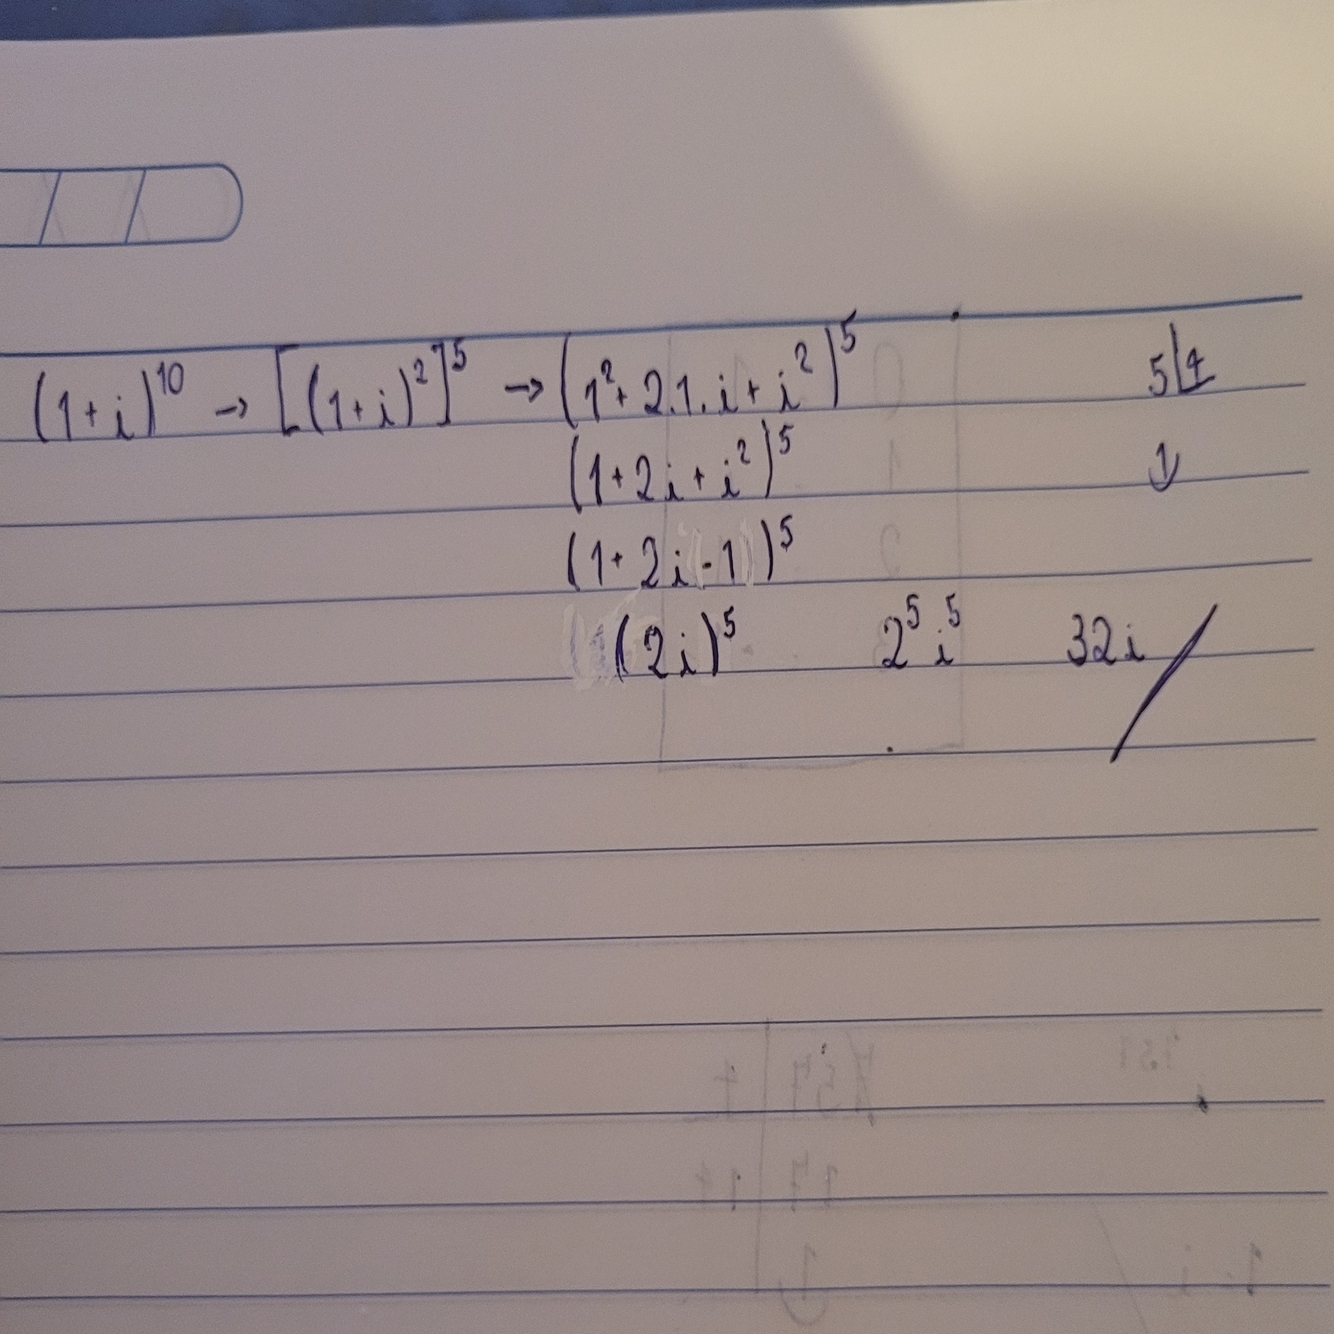 (1+i)¹⁰ → [(1+i)²]⁵ → (1²+2.1.i+i²)⁵ 5|4
(1+2i+i²)⁵ 1
(1+2i-1)⁵
(2i)⁵ 2⁵i⁵ 32i